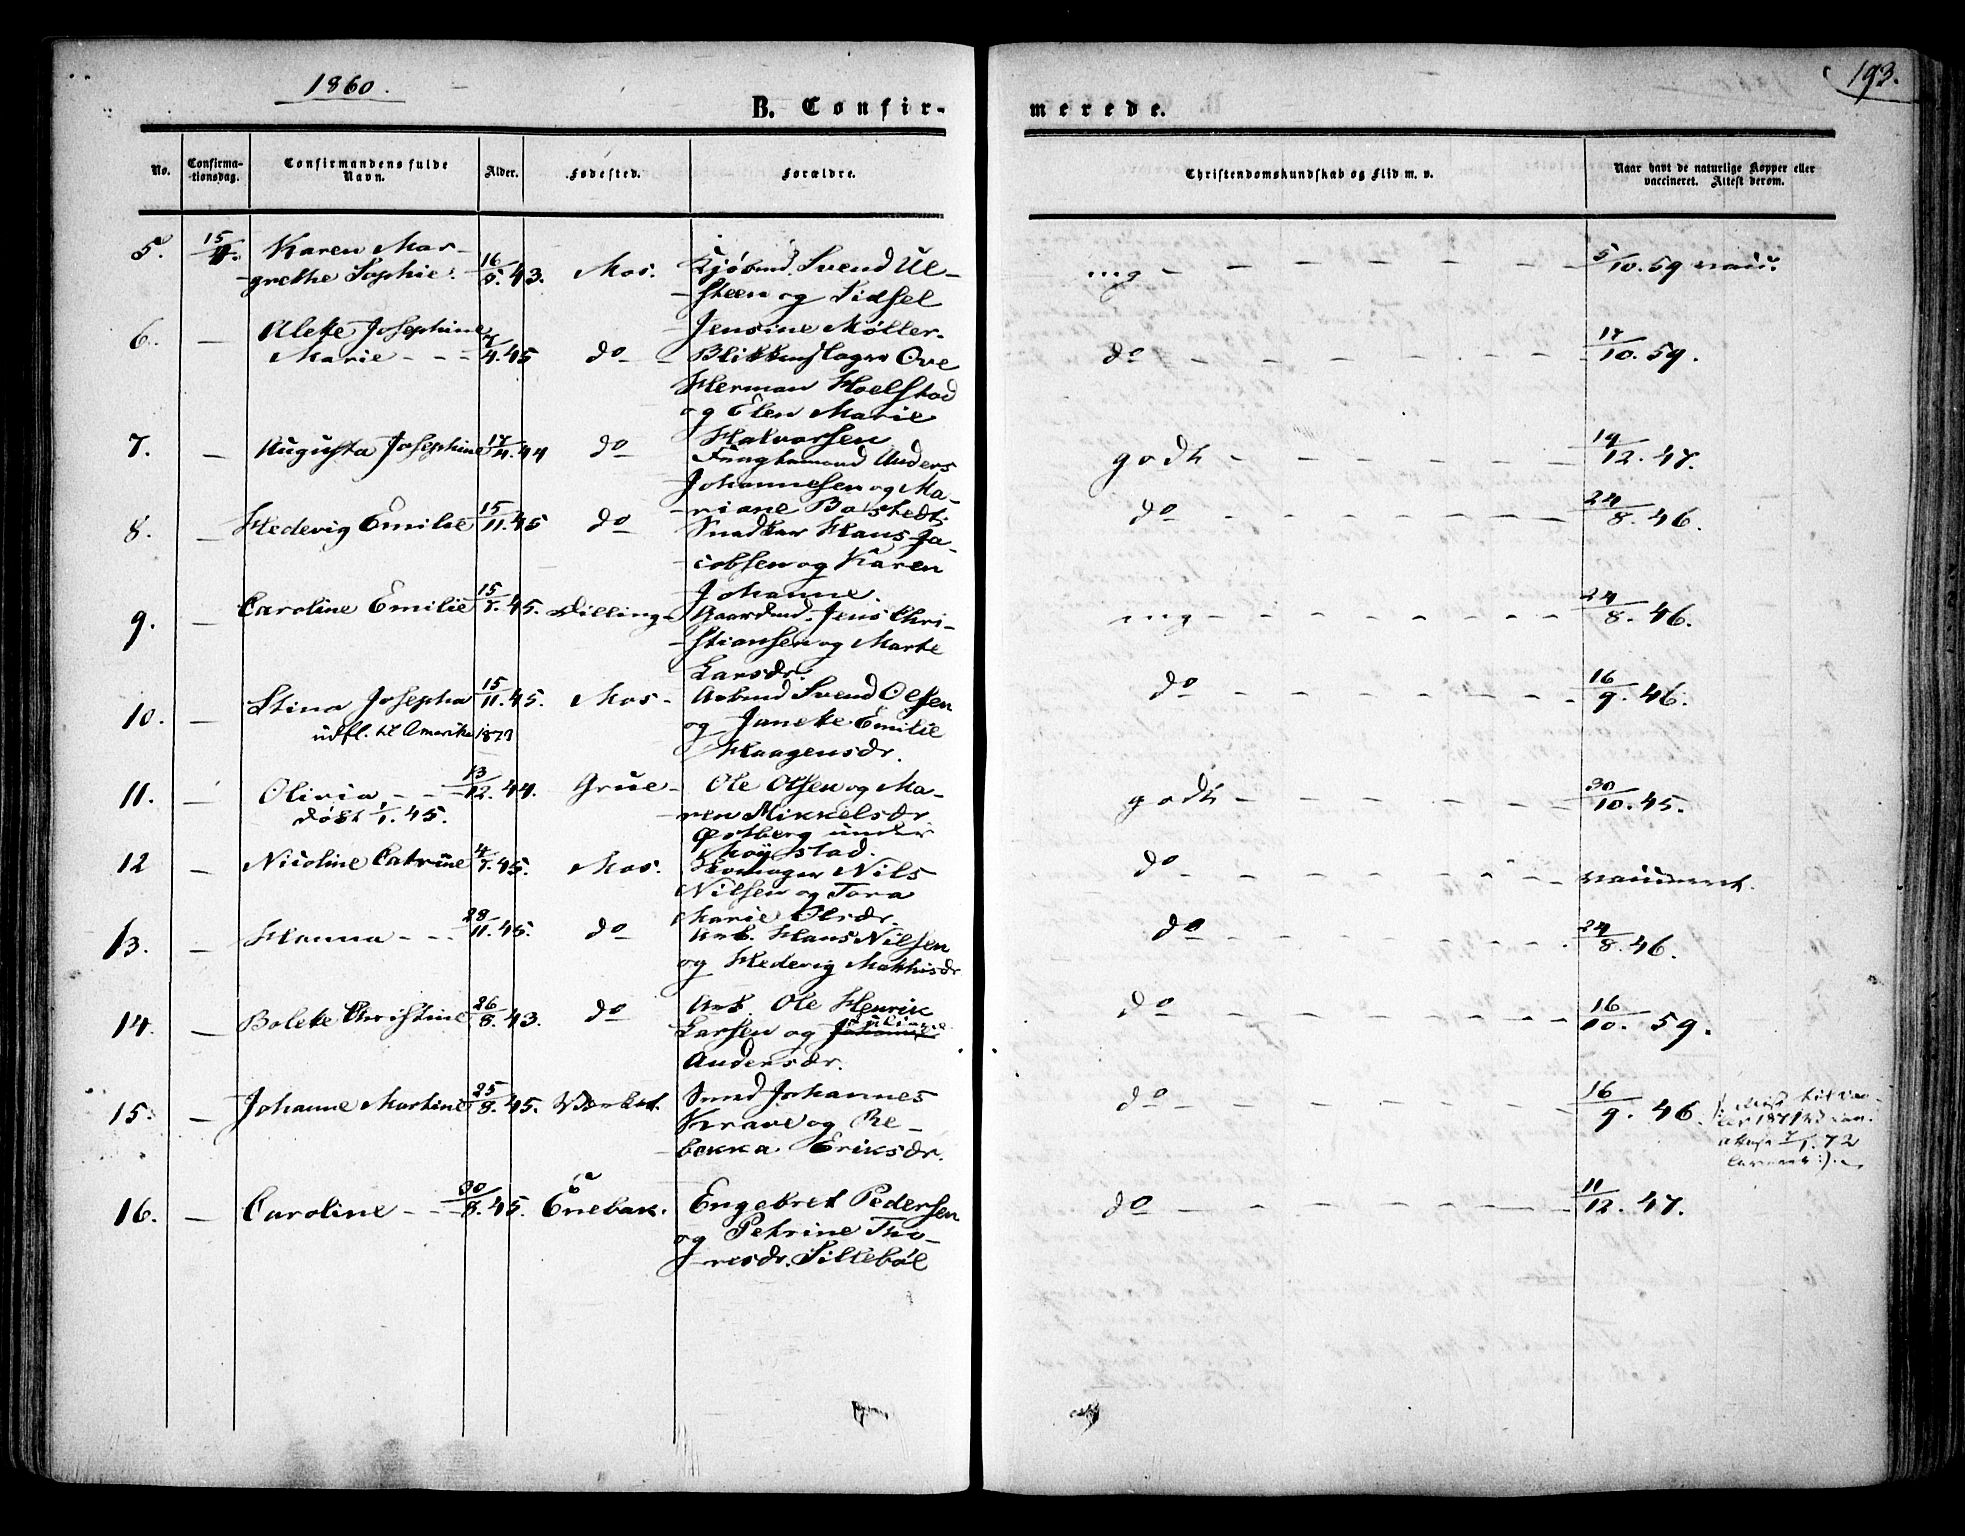 1860.
193.
B. Confir-
merede.
No.
Confirma-
tionsdag.
Confirmandens fulde
Navn.
Alder.
Fødested.
Forældre.
Christendomskundskab og Flid m. v.
Naar havt de naturlige Kopper eller
vaccineret. Attest derom.
5. 15/4. Karen Mar- 16/5. 43. Mos. Kjøbmd. Svend Ul- mg - 5/10. 59
grethe Sophie. steen og Sidsel
Jensine Møller.
6. — Alette Josephine
Marie - - 7/4. 45 do Blikkenslager Ove do 17/10. 59.
Herman Hoelstad
og Elen Marie
Halvorsen
7. — Augusta Josephine 17/4. 44 do Anders godt - 19/12. 47.
Johannesen og Ma-
riane Bastedt.
8. — Hedevig Emilie 15/11. 45 do Snedker Hans Ja- do 24/8. 46.
cobsen og Karen
Johanne.
9. — Caroline Emilie 15/7. 45. Dilling - Gaardmd. Jens Chri- mg - 24/8. 46.
stiansen og Marte
Larsdr.
10. — Stina Josepha 15/11. 45. Mos - Arbmd Svend Olsen do 16/9. 46.
udfl. til Amerika og Janeke Emilie
Haagensdr.
11. — Olivia - - 13/12. 44. Grue - Ole Olsen og Ma- godt - 30/10. 45.
døbt 1/1. 45. ren Mikkelsdr
Østberg under
12 — Nicoline Catrine 4/7. 45. Mos. Skomager Nils do
Nilsen og Tora
Marie Olsdr.
13. — Hanna - - 28/11. 45. do Arb. Hans Nilsen do 24/8. 46.
og Hedevig Mathisdr
14. — Bolete Christine 26/8. 43. do Arb. Ole Henrik do 16/10. 59.
Larsen og
Andersdr.
15. — Johanne Martine 25/8. 45. Værket. Smed Johannes do 16/9. 46.
Krave og Re-
bekka Eriksdr.
16. — Caroline - - 30/8. 45. Enebak. Engebret Pedersen do 11/12. 47.
og Petrine Tho-
resdr. Sillebøl